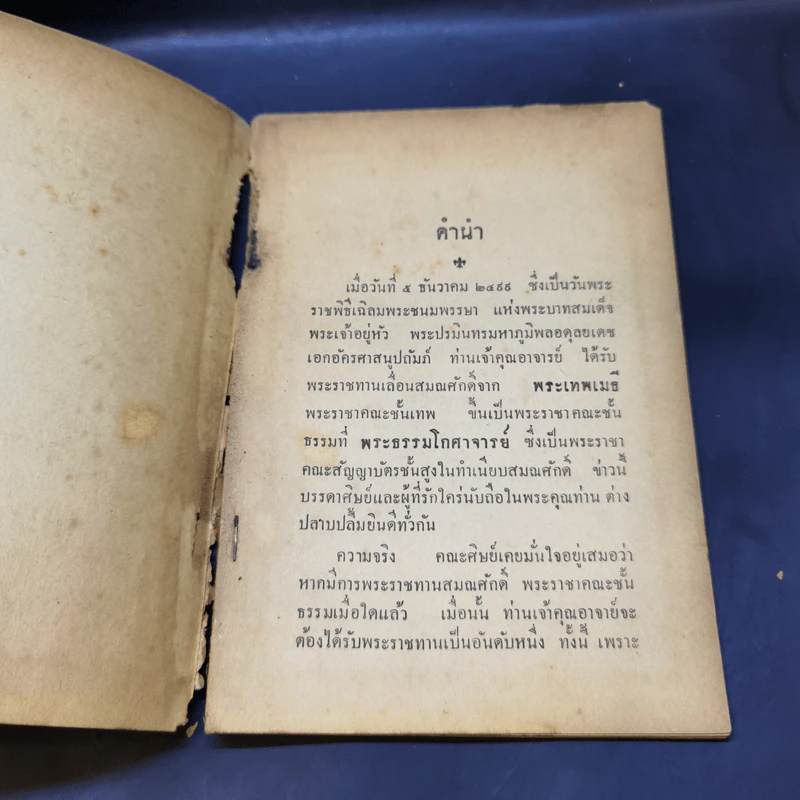 คำนำ
เมื่อวันที่ ๕ ธันวาคม ๒๔๙๙ ซึ่งเป็นวันพระ
ราชพิธีเฉลิมพระชนมพรรษา แห่งพระบาทสมเด็จ
พระเจ้าอยู่หัว พระปรมินทรมหาภูมิพลอดุลยเดช
เอกอัครศาสนูปถัมภ์ ท่านเจ้าคุณอาจารย์ ได้รับ
พระราชทานเลื่อนสมณศักดิ์จาก พระเทพเมธี
พระราชาคณะชั้นเทพ ขึ้นเป็นพระราชาคณะชั้น
ธรรมที่ พระธรรมโกศาจารย์ ซึ่งเป็นพระราชา
คณะสัญญาบัตรชั้นสูงในทำเนียบสมณศักดิ์ ข่าวนี้
บรรดาศิษย์และผู้ที่รักใคร่นับถือในพระคุณท่าน ต่าง
ปลาบปลื้มยินดีทั่วกัน
ความจริง คณะศิษย์เคยมั่นใจอยู่เสมอว่า
หากมีการพระราชทานสมณศักดิ์ พระราชาคณะชั้น
ธรรมเมื่อใดแล้ว เมื่อนั้น ท่านเจ้าคุณอาจาย์จะ
ต้องได้รับพระราชทานเป็นอันดับหนึ่ง ทั้งนี้ เพราะ